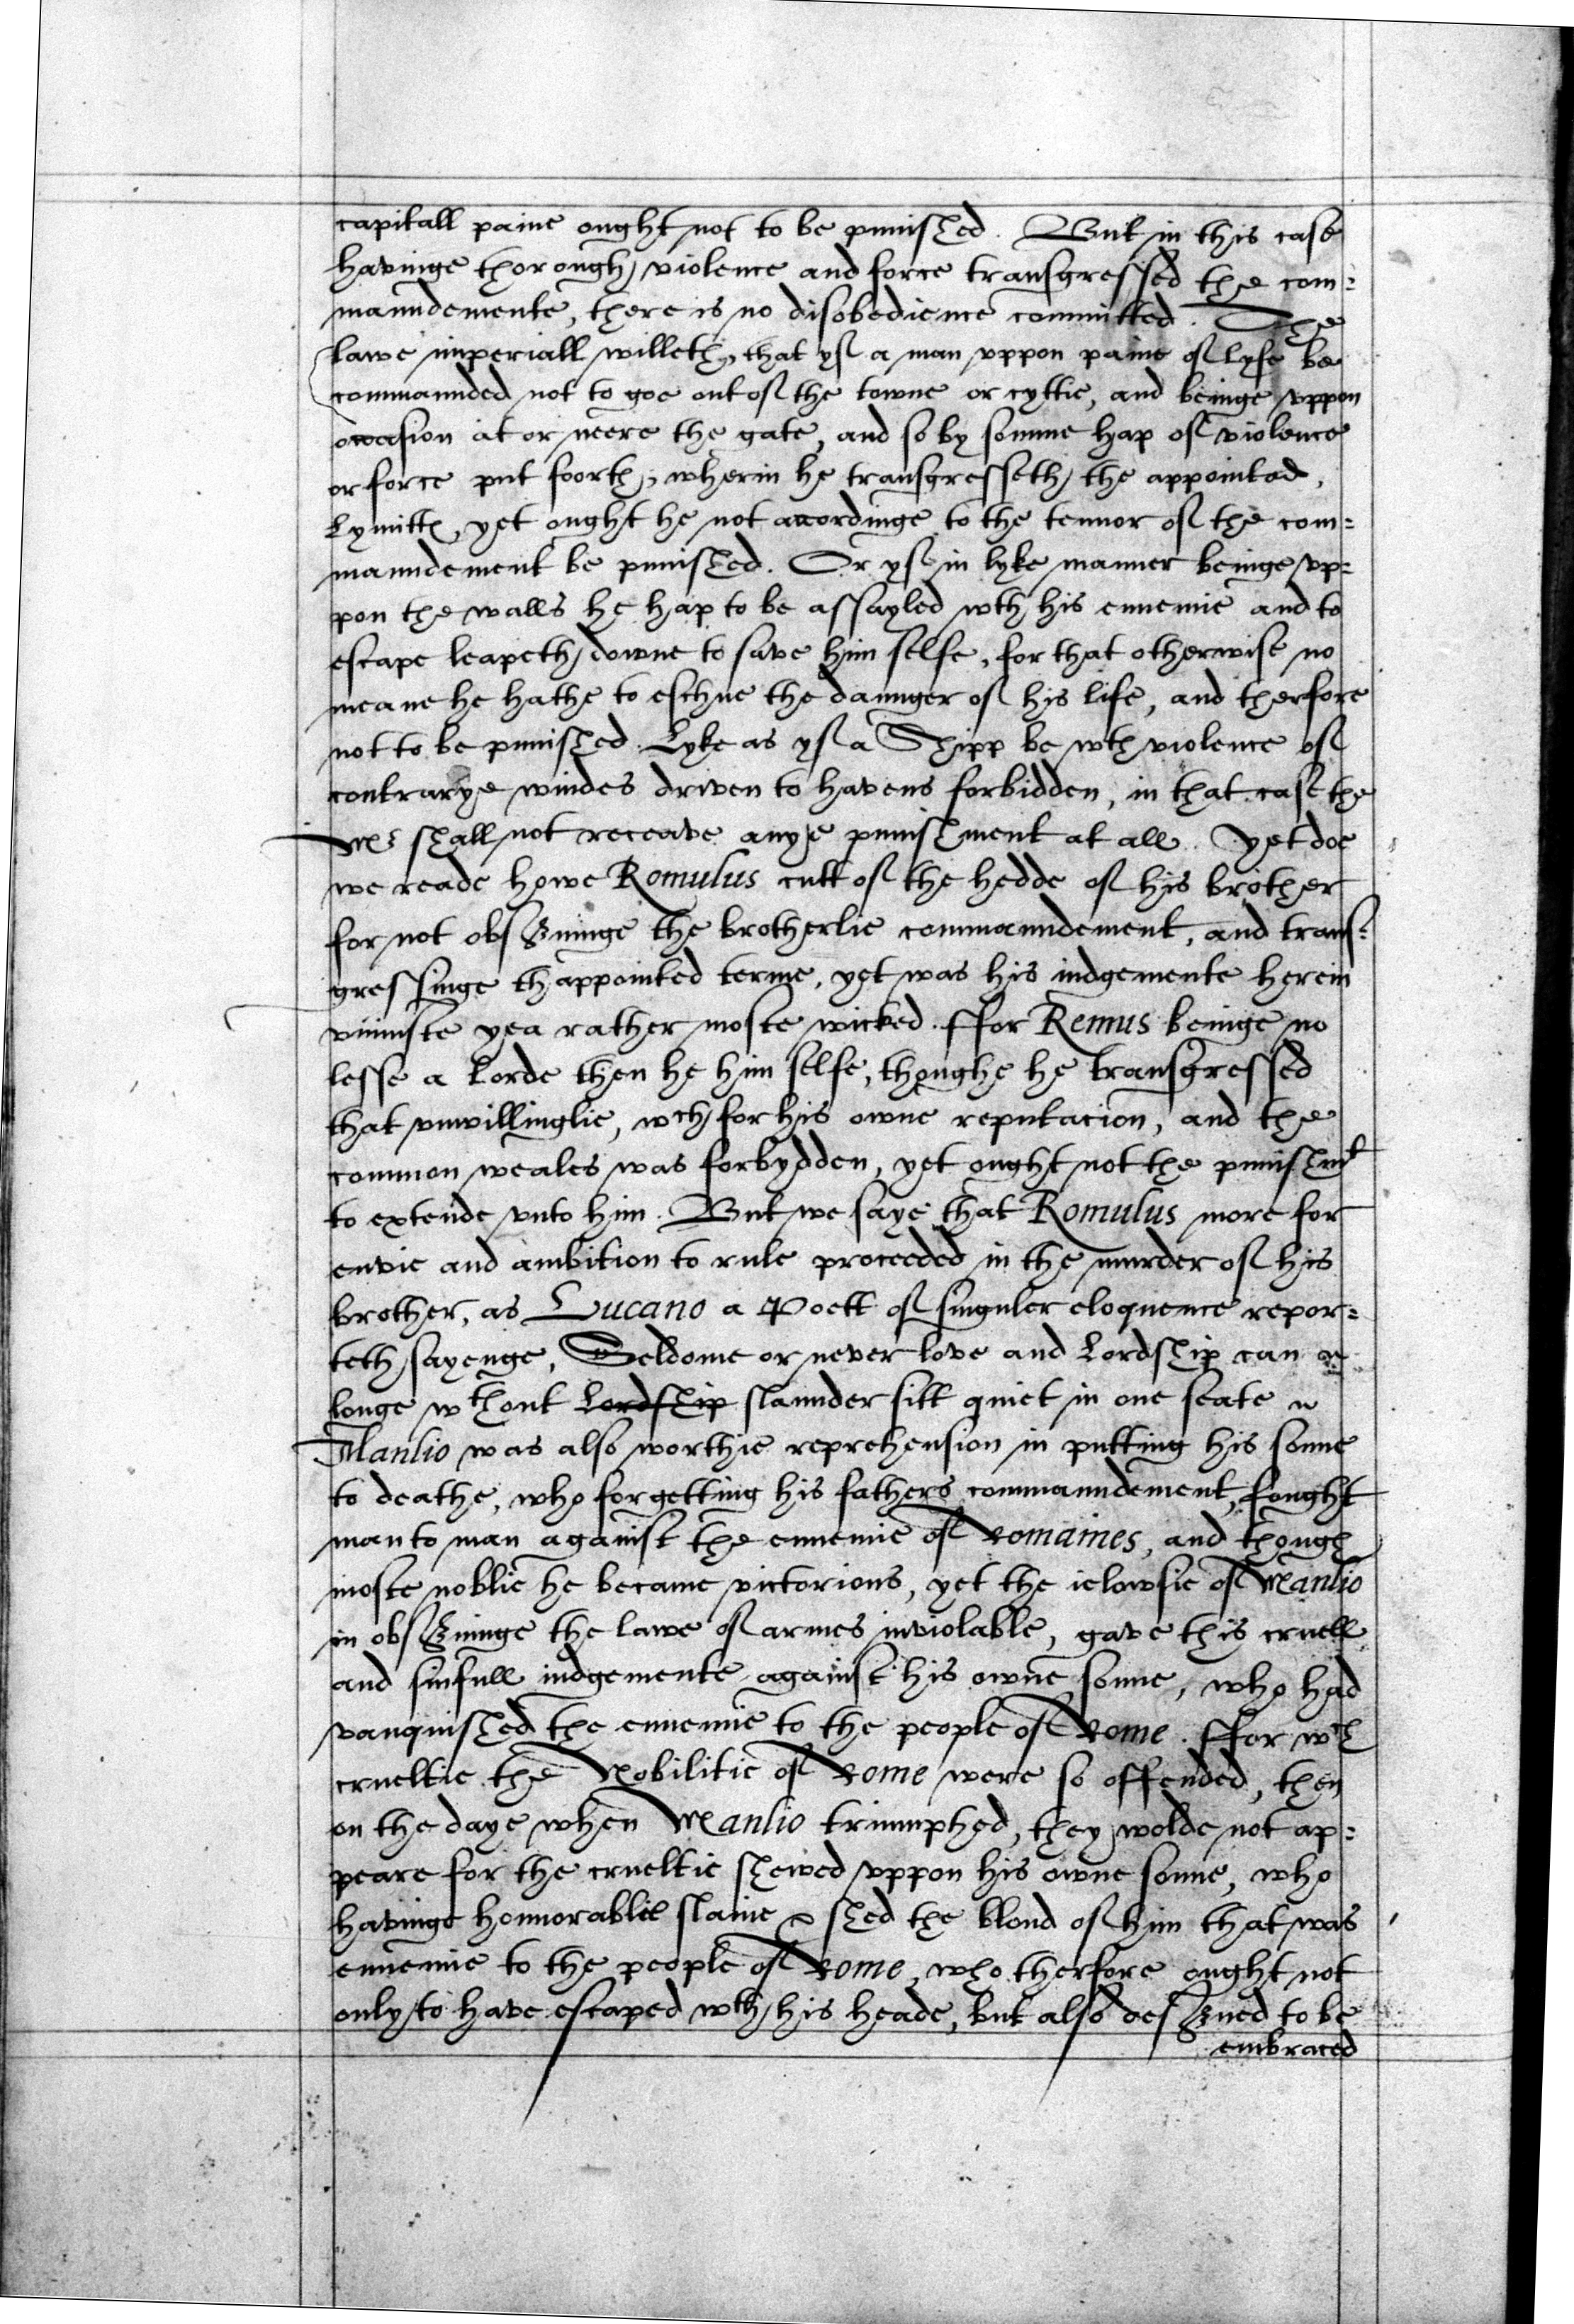 capitall paine ought not to be punished. But in this case
havinge thorough violence and force transgressed the com=
maundemente, there is no disobedience committed. The
lawe imperiall willeth, that yf a man vppon paine of lyfe be
commaunded not to goe out of the towne or cyttie, and beinge vppon
occasion at or neere the gate, and so by somme hap of violence
or force put foorth, wherin he transgresseth the appointed,
Lymitts, yet ought he not accordinge to the tennor of the com=
maundement be punished. Or yf in lyke manner beinge vp=
pon the walls he hap to be assayled wth his ennemie and to
escape leapeth downe to save him selfe, for that otherwise no
meane he hathe to eschue the daunger of his life, and therfore
not to be punished. Lyke as yf a Shipp be wth violence of
contrarye windes driven to havens forbidden, in that case the
Mr shall not receave anye punishment at all. Yet doe
we reade howe Romulus cutt of the hedde of his brother
for not observinge the brotherlie commaundement, and trans=
gressinge thappointed terme, yet was his iudgemente herein
vniuste yea rather moste wicked. ffor Remus beinge no
lesse a Lorde then he him selfe, thoughe he transgressed
that vnwillinglie, wch for his owne reputacion, and the
common weales was forbydden, yet ought not the punishmt
to extende vnto him. But we saye that Romulus more for
envie and ambition to rule proceeded in the murder of his
brother, as Lucano a Poett of singuler eloquence repor=
teth sayenge, Seldome or never love and Lordship can a
longe wthout Lordship slaunder sitt quiet in one seate
Manlio was also worthie reprehension in putting his sonne
to deathe, who forgetting his fathers commaundement, fought
man to man against the ennemie of Romaines, and though
moste noblie he became victorious, yet the ielowsie of Manlio
in observinge the lawe of armes inviolable, gave this cruell
and sinfull iudgemente against his owne sonne, who had
vanquished the ennemie to the people of Rome. ffor wch
crueltie the Nobilitie of Rome were so offended, then
on the daye when Manlio triumphed, they wolde not ap=
peare for the crueltie shewed vppon his owne sonne, who
havinge honnorablie slaine & shed the bloud of him that was
ennemie to the people of Rome, who therfore ought not
only to have escaped wth his heade, but also deserved to be
embraced